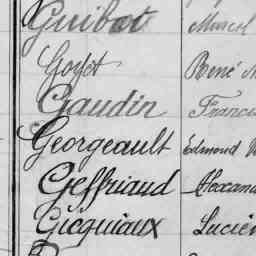 Guibot Marcel
Goyot René
Gaudin
Georgeault Edmond
Geffriaud
Gicquiaux Lucien